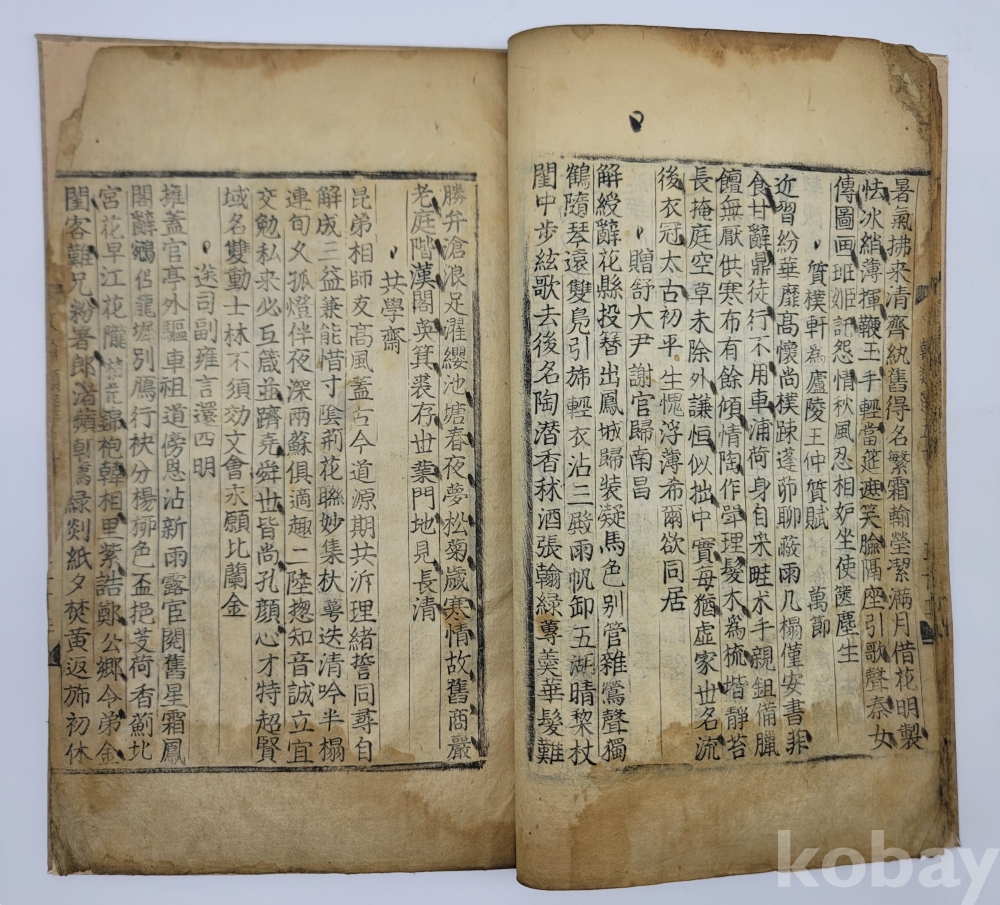 暑氣拂來清齊紈舊得名繁霜翰瑩潔滿月借花明製
怯冰綃薄揮鞭玉手輕當筵遮笑臉隔座引歌聲秦女
傳圖画班姬託怨情秋風忍相妒坐使篋塵生
質樸軒為廬陵王仲質賦 萬節
近習紛華靡高懷尚樸踈蓬茆聊蔽雨几榻僅安書非
食甘辭鼎徒行不用車浦荷身自米畦术手親鉏備臘
饘無厭供寒布有餘傾情陶作聱理髮木為梳堦靜苔
長掩庭空草未除外謙恒似拙中實每猶虛家世名流
後衣冠太古初平生愧浮薄希爾欲同居
贈舒大尹謝官歸南昌
解綬辭花縣投替出鳳城歸裝凝馬色别管雜鶯聲獨
鶴隨琴遠雙鳧引斾輕衣沾三殿雨帆卸五湖晴棃杖
閨中步絃歌去後名陶潜香秫酒張翰綠蓴羮華髮難
勝弁滄浪足濯纓池塘春夜夢松菊歲寒情故舊商嚴
老庭階漢閣英箕裘存世葉門地見長清
共學齋
昆弟相師友高風盖古今道源期共泝理緒誓同尋自
解成三益兼能惜寸陰荊花聯妙集杕萼迭清吟半榻
連旬乂孤燈伴夜深兩蘇俱適趣二陸揔知音誠立宜
交勉私来必互箴並躋堯舜世皆尚孔顔心才特超賢
域名雙動士林不須効文會永願比蘭金
送司副雍言還四明
擁盖官亭外驅車祖道傍恩沾新雨露宦閱舊星霜鳳
閣辭鵷侣龍墀別鴈行袂分楊栁色盃挹芰荷香薊北
宮花早江花隴 錦袍韓相里紫誥鄭公鄉令弟金
閨客難兄粉署郎渚蘋 綠剡紙夕焚黄返斾初休